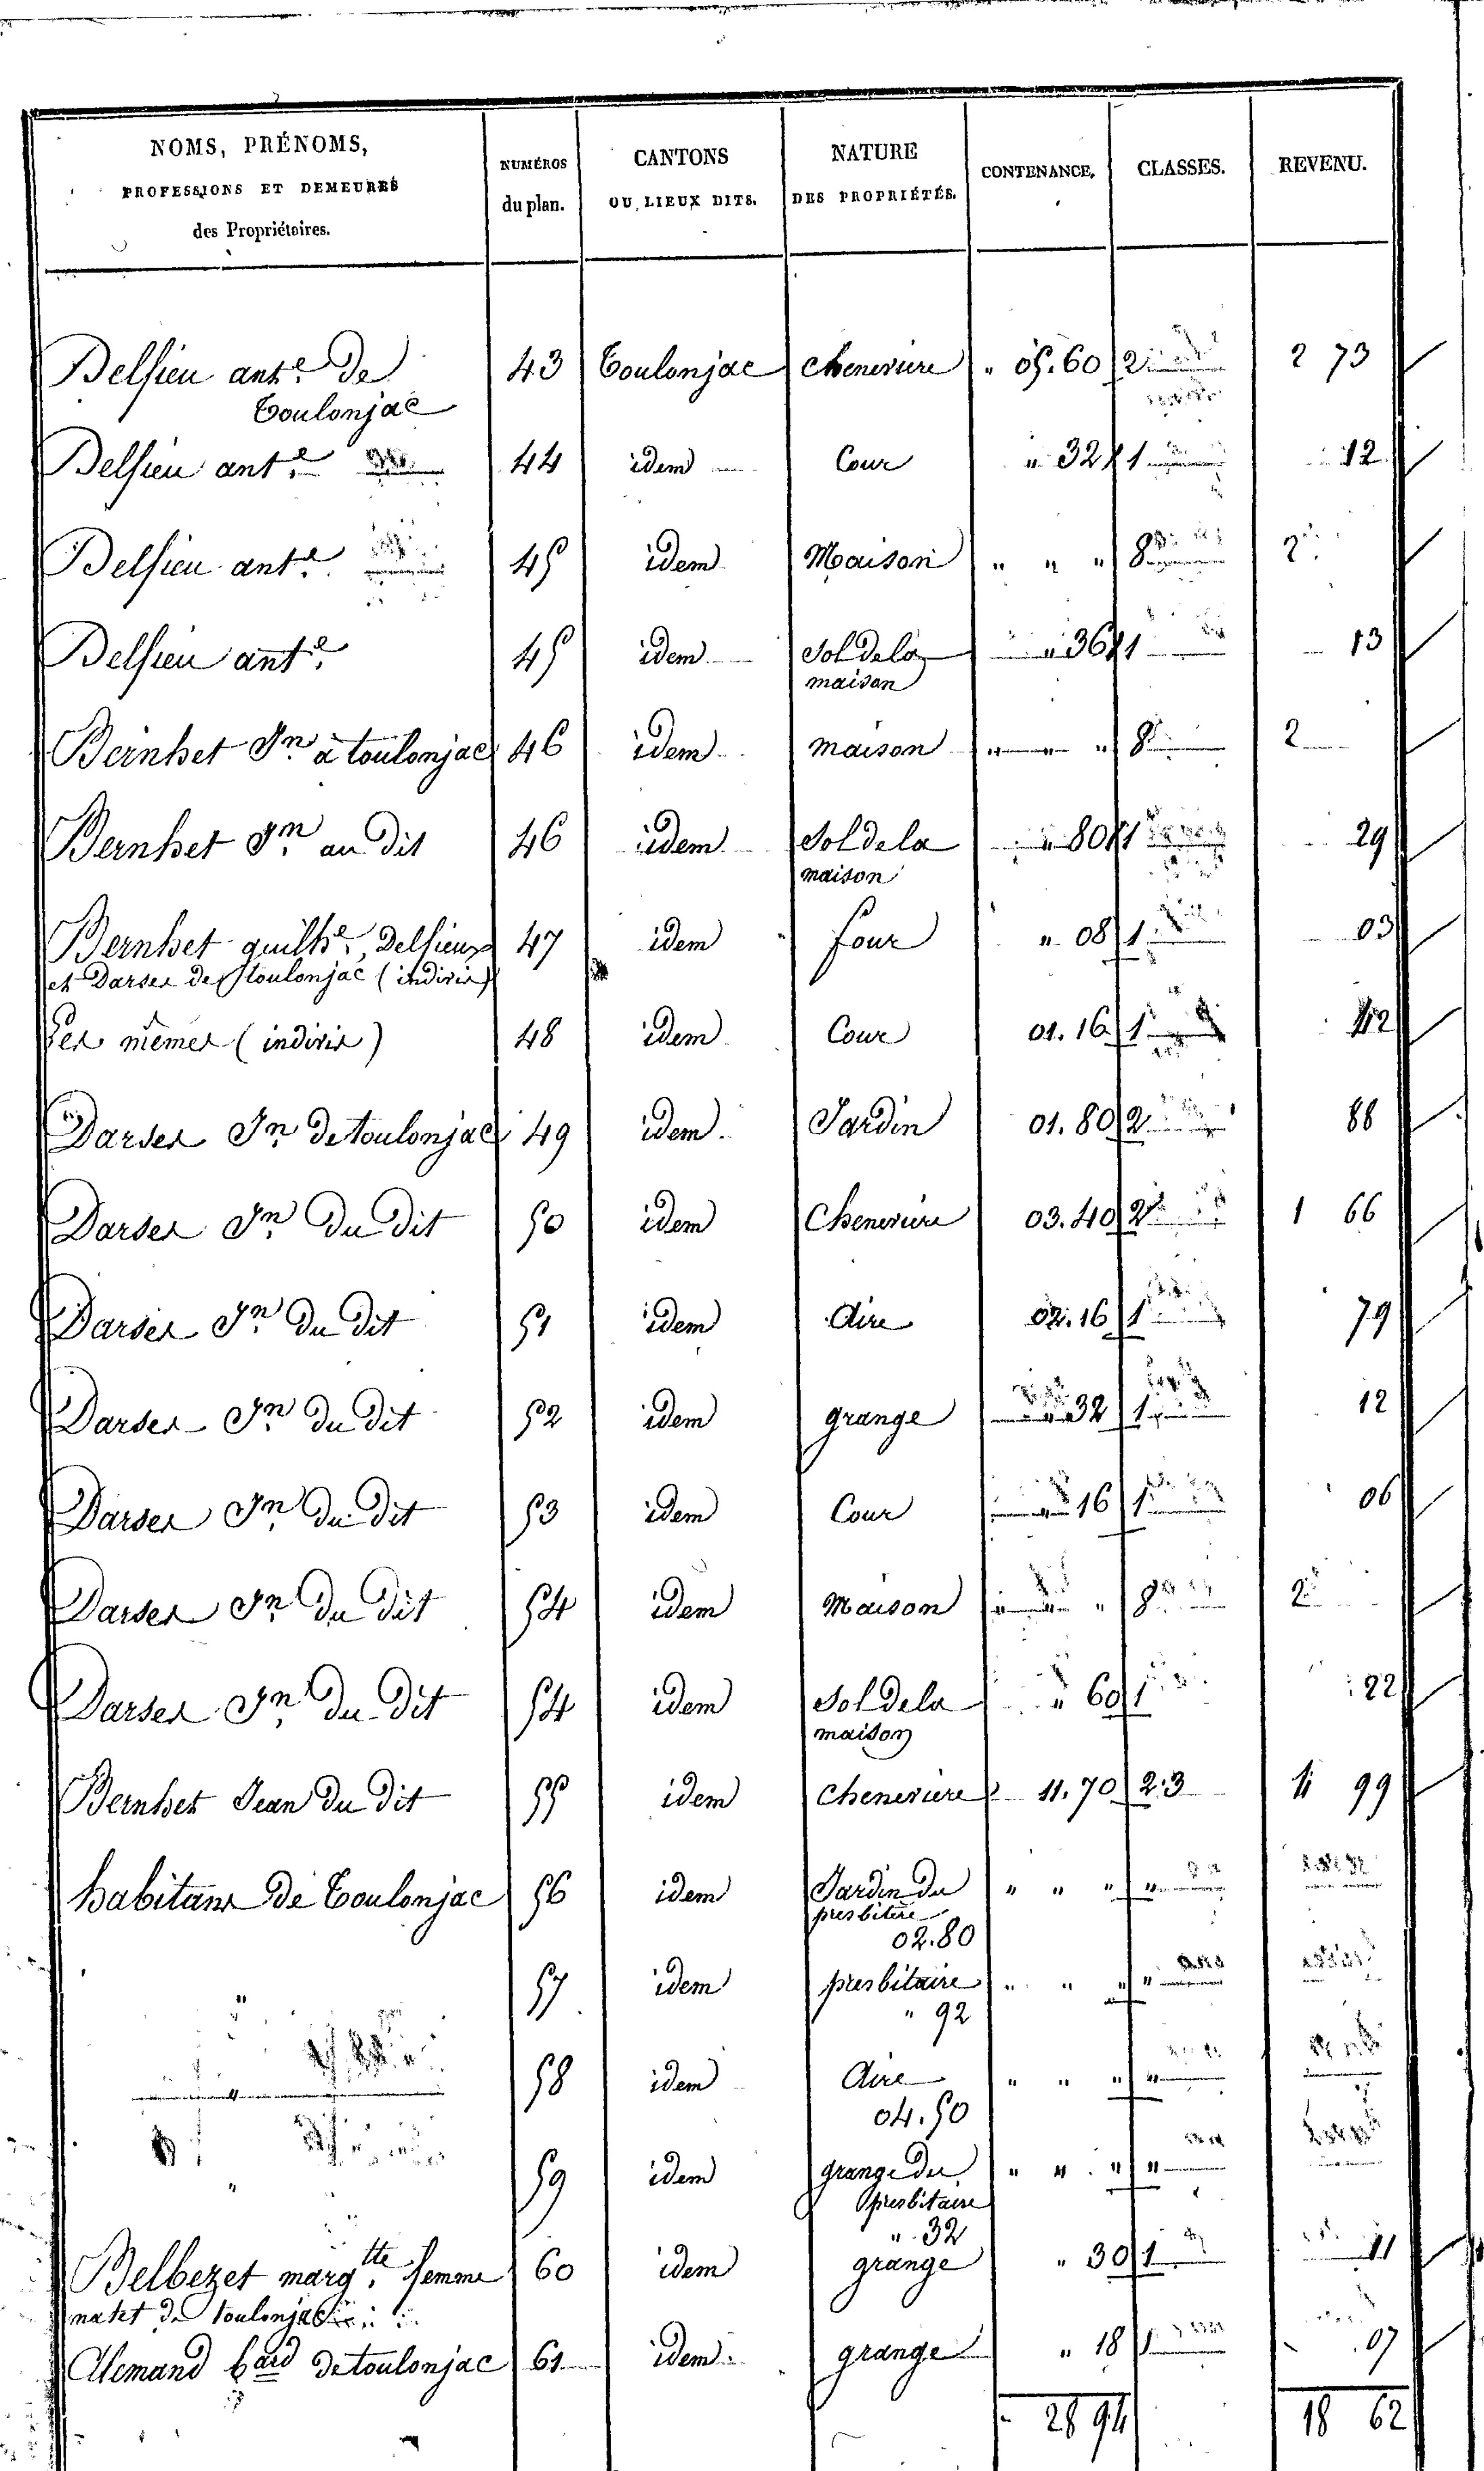 NOMS, PRÉNOMS,
PROFESSIONS ET DEMEURES
des Propriétaires.
NUMÉROS
du plan.
CANTONS
OU LIEUX DITS.
NATURE
DES PROPRIÉTÉS.
CONTENANCE.
CLASSES.
REVENU.
Delsieu ant.e de 43 Toulonjac cheneviere " 05.60 2 2 73
Toulonjac
Delsieu ant.e 44 idem Cour " 32 1 12
Delsieu ant.e 45 idem Maison " " " 8 2
Delsieu ant.e 45 idem Sol de la " 36 1 13
maison
Bernhet Jn a toulonjac 46 idem maison " " " 8 2
Bernhet Jn au dit 46 idem Sol de la " 80 1 29
maison
Bernhet guilhe, Delsieux 47 idem four " 08 1 03
et Darses de toulonjac (indivis)
Les mêmes (indivis) 48 idem Cour 01.16 1 42
Darses Jn de toulonjac 49 idem Jardin 01.80 2 88
Darses Jn du dit 50 idem Cheneviere 03.40 2 1 66
Darses Jn du dit 51 idem Aire 02.16 1 79
Darses Jn du dit 52 idem grange " 32 1 12
Darses Jn du dit 53 idem Cour " 16 1 06
Darses Jn du dit 54 idem Maison " " " 8 2
Darses Jn du dit 54 idem Sol de la " 60 1 22
maison
Bernhet Jean du dit 55 idem cheneviere 11.70 2.3 4 99
habitans de Toulonjac 56 idem Jardin du " " " "
presbitère
02.80
" 57 idem presbitaire " " " "
" 92
" 58 idem Aire " " " "
04.50
" 59 idem grange du " " " "
presbitaire
" 32
Delbezet marg.tte femme 60 idem grange " 30 1 11
matet de toulonjac
Alemand b.ard de toulonjac 61 idem grange " 18 1 07
28 94 18 62